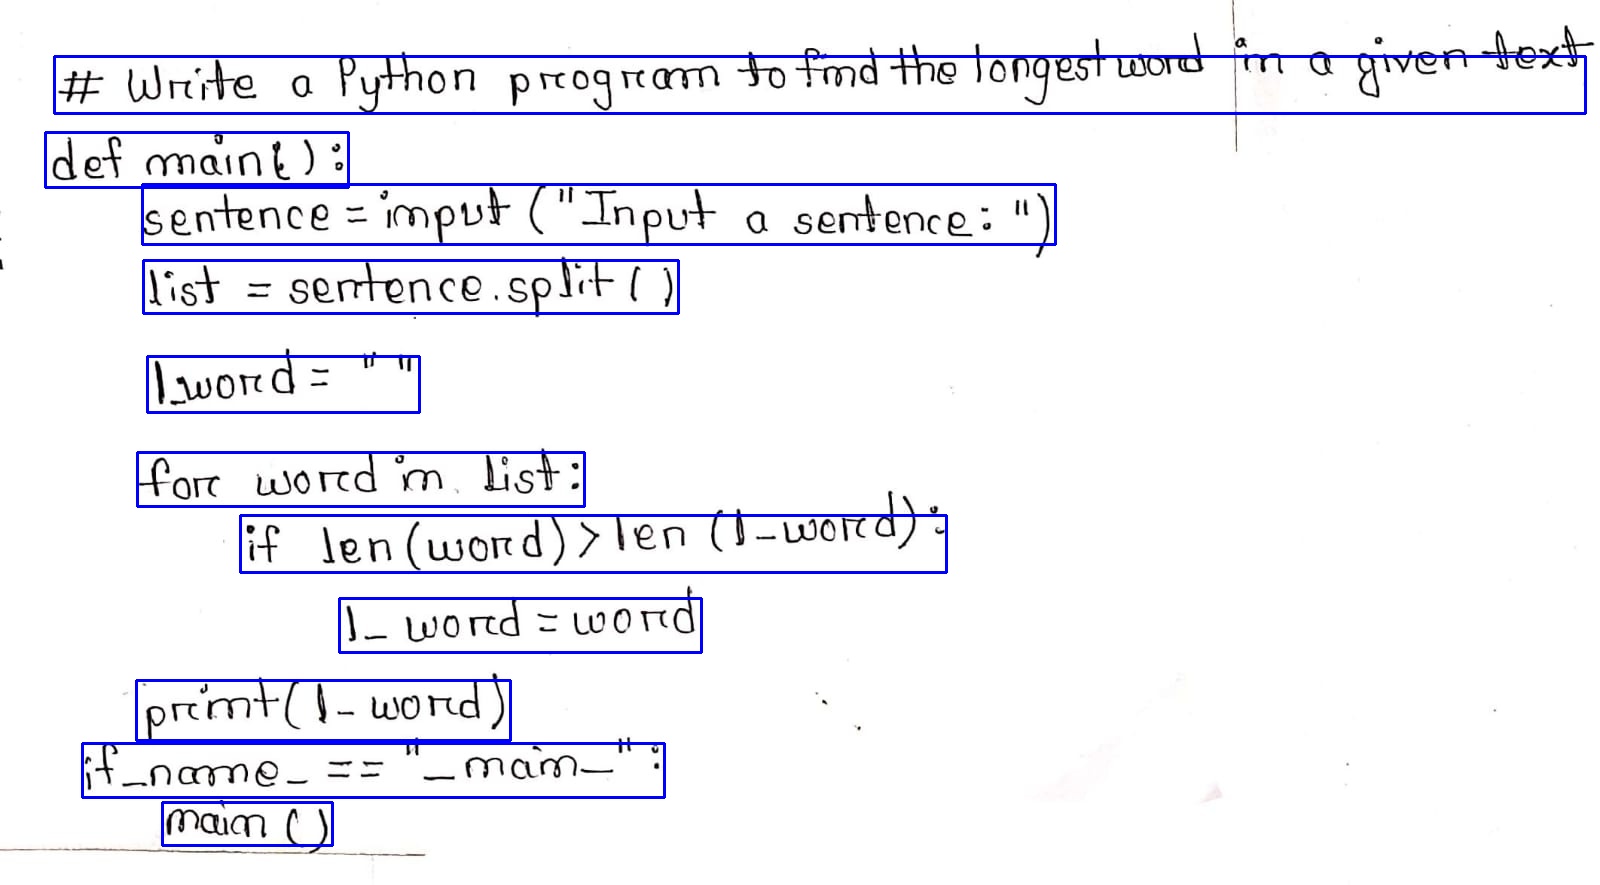 # Write a Python program to find the longest word in a given text
def main():
sentence = input ("Input a sentence: ")
list = sentence.split()
l_word = " "
for word in list:
if len(word) > len (l_word):
l_word = word
print(l_word)
if _name_ == "_main_":
main ()